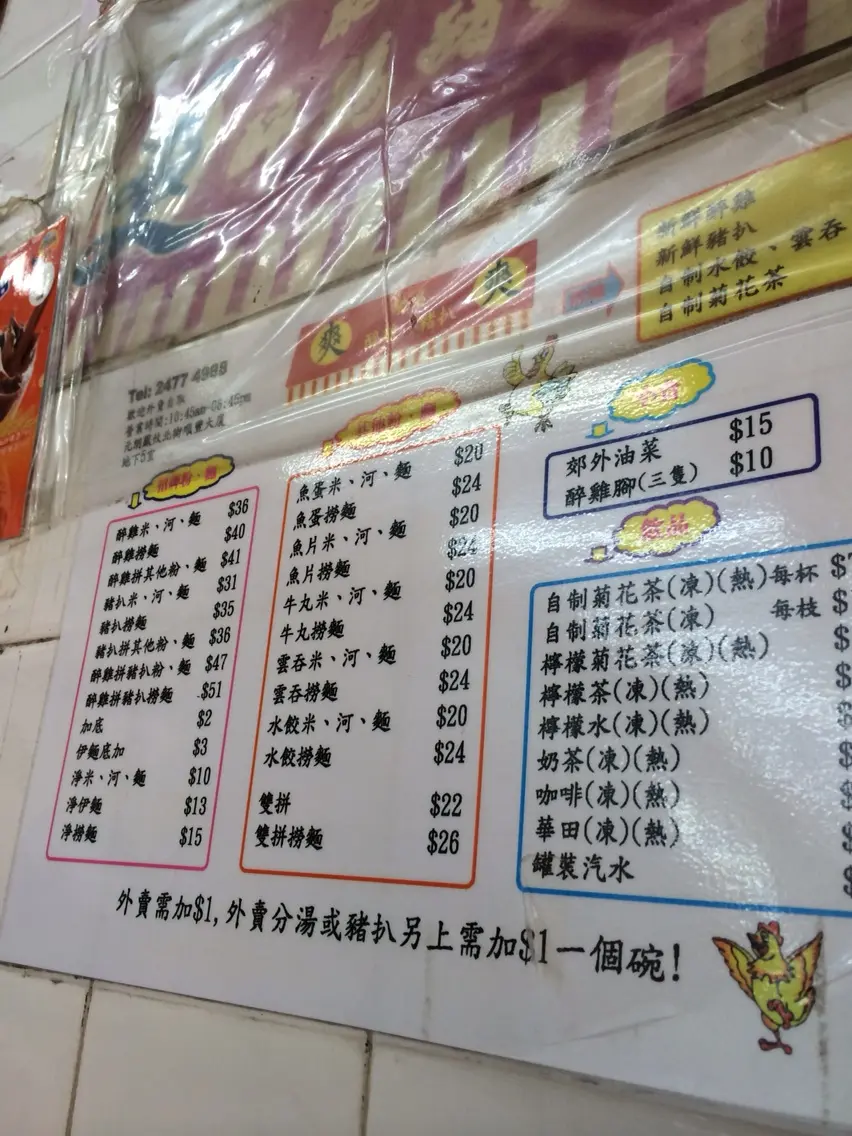 新鮮醉雞
新鮮豬扒
自制水餃、雲吞
自制菊花茶
爽
爽
Tel: 2477 4985
歡迎外賣自取
營業時間:10:45am-05:45pm
地下5室
招牌粉、麵
醉雞米、河、麵 $36
醉雞撈麵 $40
醉雞拼其他粉、麵 $41
豬扒米、河、麵 $31
豬扒撈麵 $35
豬扒拼其他粉、麵 $36
醉雞拼豬扒粉、麵 $47
醉雞拼豬扒撈麵 $51
加底 $2
伊麵底加 $3
淨米、河、麵 $10
淨伊麵 $13
淨撈麵 $15
其他粉、麵
魚蛋米、河、麵 $20
魚蛋撈麵 $24
魚片米、河、麵 $20
魚片撈麵 $24
牛丸米、河、麵 $20
牛丸撈麵 $24
雲吞米、河、麵 $20
雲吞撈麵 $24
水餃米、河、麵 $20
水餃撈麵 $24
雙拼 $22
雙拼撈麵 $26
郊外油菜 $15
醉雞腳(三隻) $10
飲品
自制菊花茶(凍)(熱)每杯 $
自制菊花茶(凍) 每枝 $
檸檬菊花茶(凍)(熱) $
檸檬茶(凍)(熱) $
檸檬水(凍)(熱) $
奶茶(凍)(熱) $
咖啡(凍)(熱) $
華田(凍)(熱) $
罐裝汽水 $
外賣需加$1,外賣分湯或豬扒另上需加$1一個碗!